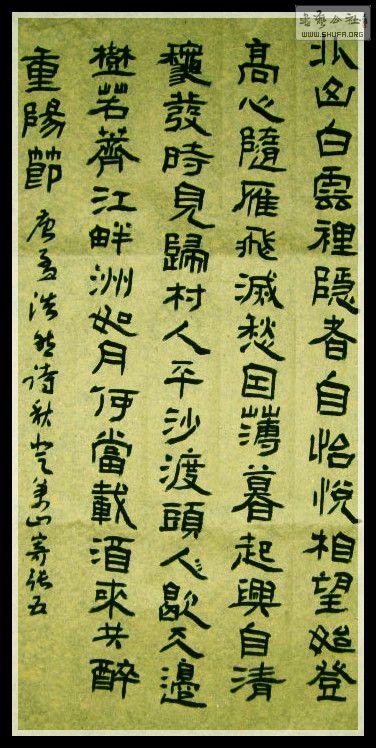 北山白雲裡隱者自怡悅相望始登
高心隨雁飛滅愁因薄暮起興自清
龝發時見歸村人平沙渡頭人歇天邊
樹若薺江畔洲如月何當載酒來共醉
重陽節 唐孟浩然詩秋登萬山寄張五
書法公社
WWW.SHUFA.ORG